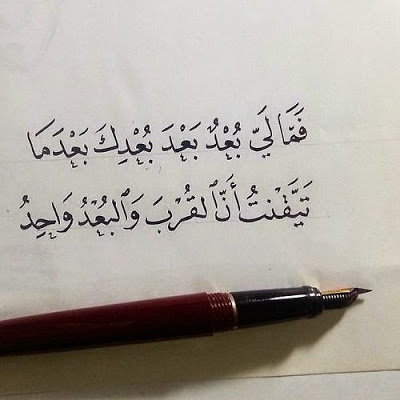 فَمَّا لَيِّ بُعْدٌ بَعْدَ بُعْدِكَ بَعْدَمَا
تَيَقَّنْتُ أَنَّ ٱلقُرْبَ وَٱلبُعْدُ وَاحِدُ